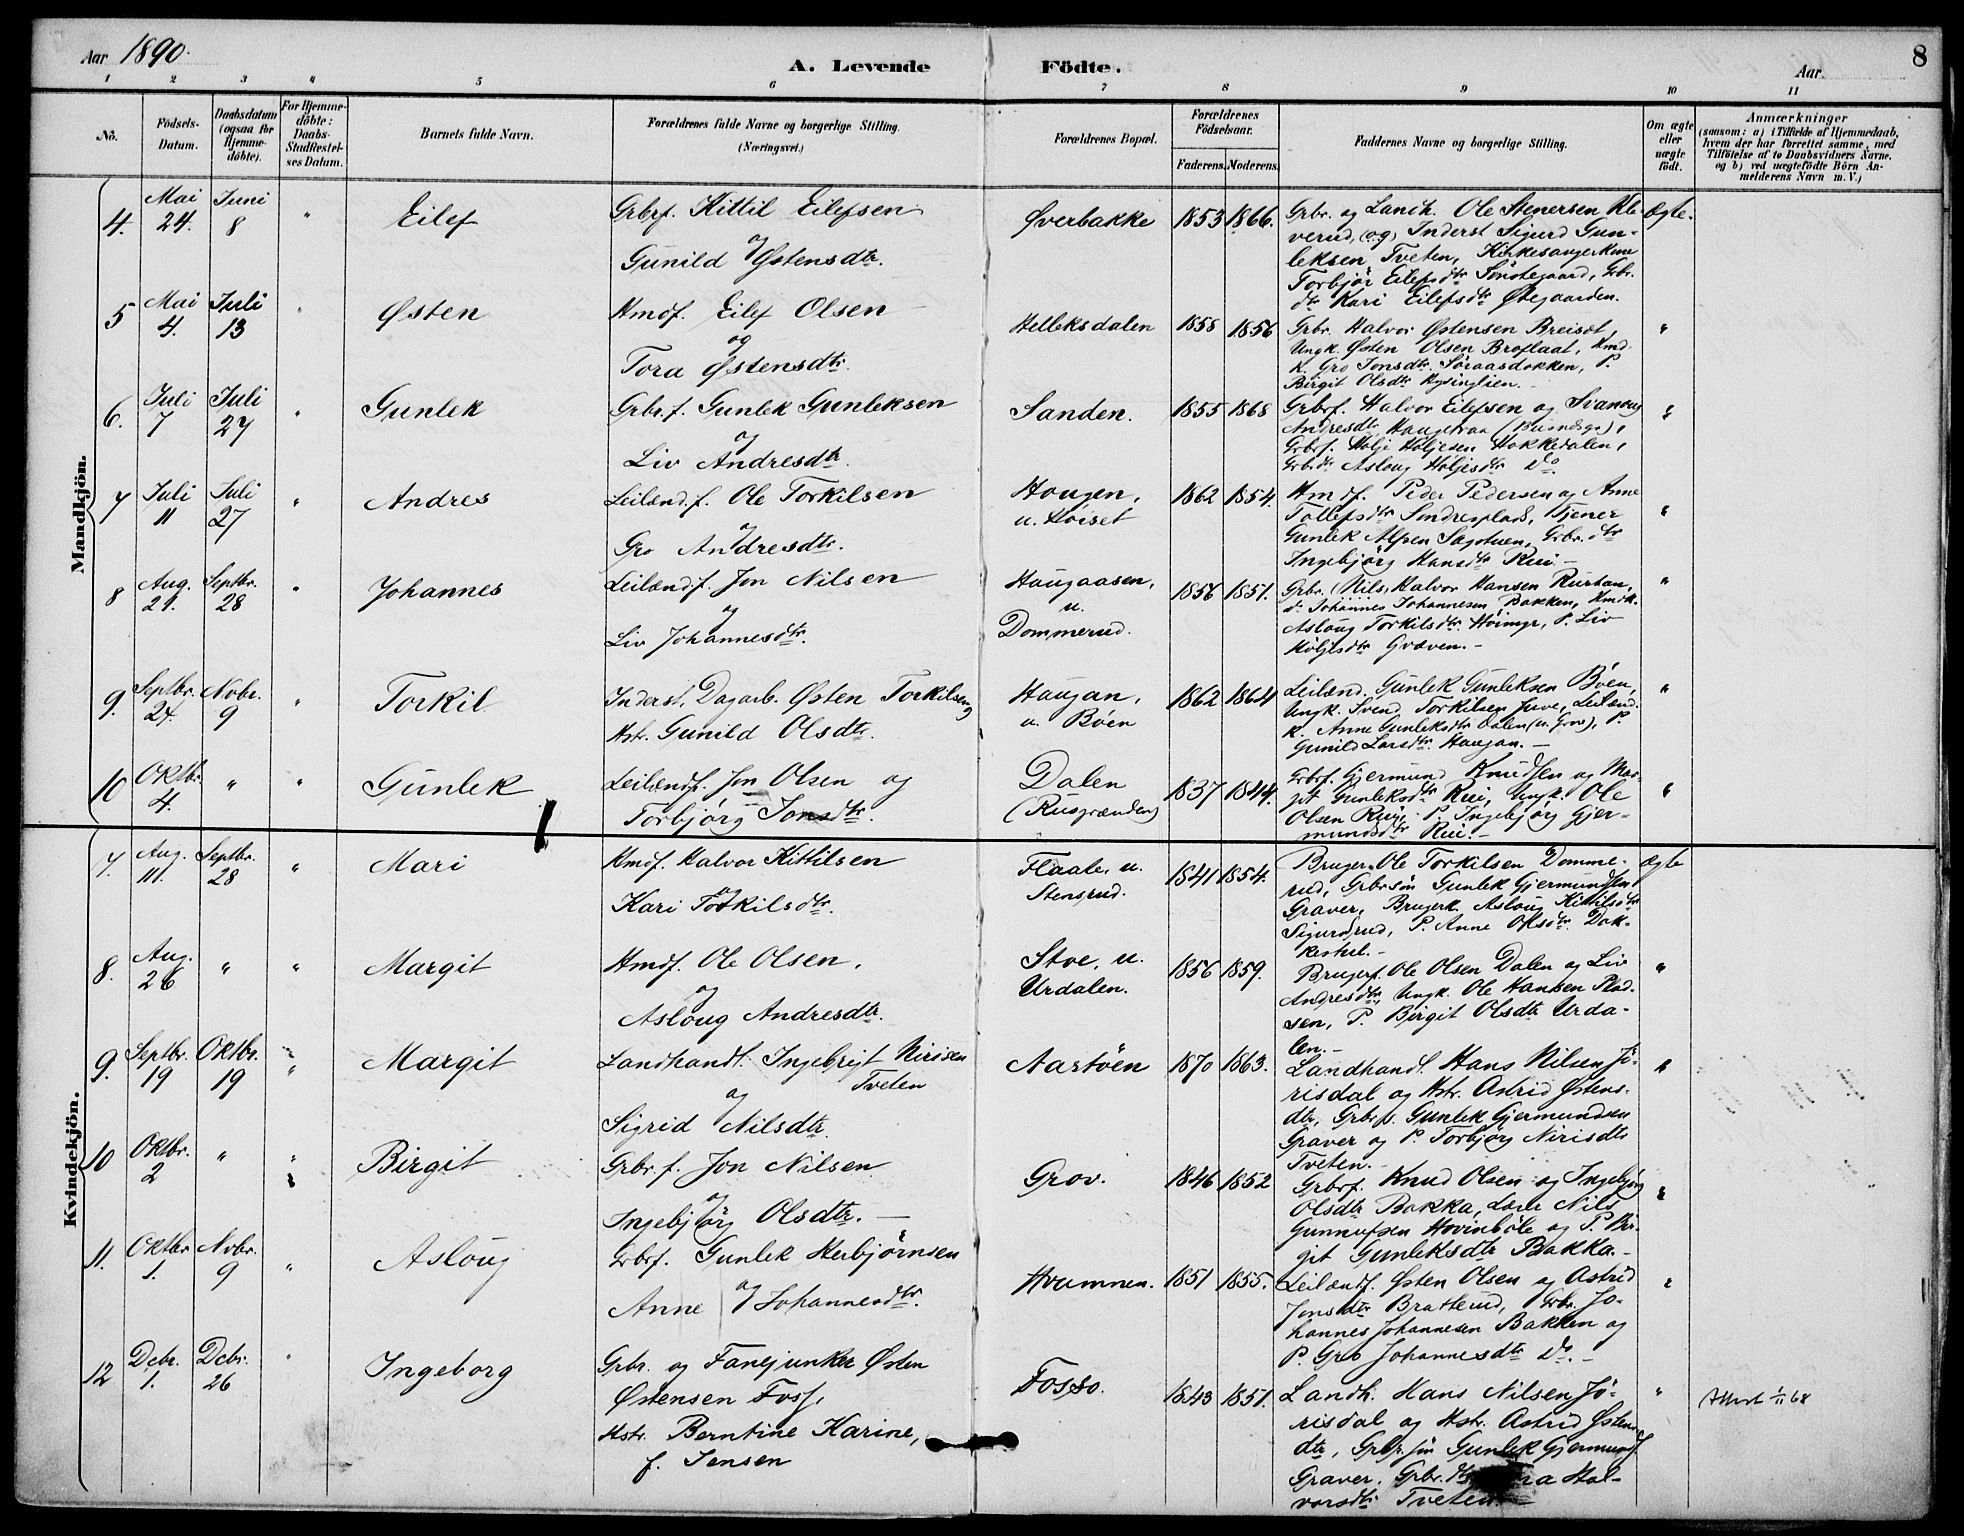 Aar 1890.
A. Levende Födte.
Aar.
8
1 2 3 4 5 6 7 8 9 10 11
No.
Födsels-Datum.
Daabsdatum (ogsaa for Hjemme-döbte).
For Hjemme-döbte: Daabs-Stadfæstel-ses Datum.
Barnets fulde Navn.
Forældrenes fulde Navne og borgerlige Stilling.
(Næringsvei.)
Forældrenes Bopæl.
Forældrenes Födselsaar.
Faderens. Moderens.
Faddernes Navne og borgerlige Stilling.
Om ægte eller uægte födt.
Anmærkninger
(saasom: a) i Tilfælde af Hjemmedaab,
hvem der har forrettet samme, med
Tilföielse af to Daabsvidners Navne,
og b) ved uægtefödte Börn An-
melderens Navn m. V.)
Mandkjön.
4. Mai 24. Juni 8 " Eilef
Grbrf. Kittil Eilefsen
og
Gunild Østensdtr.
Øverbakke 1853 1866.
Grbr. og Landh. Ole Stenersen Kle-
verud, (og) Inderst Sigurd Gun-
leksen Tveten, Kirkesangerkone
Torbjør Eilefsdtr Sønstegaard, Grbr.
dtr Kari Eilefsdtr Øtegaarden.
Ægte.
5 Mai 4. Juli 13 " Østen
Hmdf. Eilef Olsen
og
Tora Østensdtr.
Helleksdalen 1858 1856
Grbr. Halvor Østensen Breiset,
Ungk. Østen Olsen Broflaat, Hmd.
k. Gro Jonsdtr. Søraasdokken, P.
Birgit Olsdtr
"
6. Juli 7 Juli 27 " Gunlek
Grbr.f. Gunlek Gunleksen
og
Liv Andresdtr.
Sanden. 1855 1868
Grbrf. Halvor Eilefsen og Svanaug
Andresdtr
Grbrf. Holje Holjesen Hakkedalen,
Grbdtr Asloug Holjesdtr Do
"
7 Juli 11 Juli 27 " Andres
Leilænd.f. Ole Torkilsen
og
Gro Andresdtr.
Hougen,
u. Høiset
1862 1854.
Hmdf. Peder Pedersen og Anne
Tollefsdtr Sindresplads, Tjener
Gunlek Alfsen Grbr.dtr
Ingebjørg Hansdtr Rui -
"
8 Aug. 21. Septbr. 28 " Johannes
Leilænd.f. Jon Nilsen
og
Liv Johannesdtr.
Haugaasen,
u.
Dommerud.
1856 1851.
Grbr. (Nils) Halvor Hansen
d. Johannes Johannesen Bakken, Hmdk.
Asloug Torkilsdtr. P. Liv
Holjesdtr Graven. -
"
9. Septbr. 24. Novbr. 9 " Torkil
Inderst, Dagarb. Østen Torkilsen og
Hstr. Gunild Olsdtr.
Haugan,
u. Boen
1862 1864
Leilænd. Gunlek Gunleksen Bøen,
Ungk. Svend Torkilsen Juve, Leilænd.
k. Anne Gunleksdtr Dalen (u. Grov), P.
Gunild Larsdtr. Haugan. -
"
10 Oktbr. 4. " " Gunlek
Leilændf. Jon Olsen og
Torbjørg Jonsdtr.
Dalen
(Rusgrænden)
1837 1844.
Grbrf. Gjermund Knudsen og Mar-
git Gunleksdtr Rui, Ungk. Ole
Olsen Rui, P. Ingebjørg Gjer-
mundsdtr Rui. -
"
Kvindekjön.
7. Aug. 111. Septbr. 28 " Mari
Hmdf. Halvor Kittilsen
og
Kari Torkilsdtr.
Flaate, u.
Stensrud.
1841 1854.
Bruger Ole Torkilsen Domme-
rud, Grbrsøn Gunlek Gjermundsen
Graver, Brugerk. Asloug Kittilsdtr
Sigursrud, P. Anne Olsdtr. Dok-
kestul. -
Ægte
8. Aug. 26 " " Margit
Hmdf. Ole Olsen,
og
Asloug Andresdtr.
Stoe, u.
Urdalen.
1856 1859.
Brugerf. Ole Olsen Dalen og Liv
Andresdtr, Ungk. Ole Hansen Plad-
sen, P. Birgit Olsdtr Urda-
len. -
"
9. Septbr. 19 Oktbr. 19 " Margit
Landhandl. Ingebrigt Nirisen
Tveten
og
Sigrid Nilsdtr.
Aartøen 1870 1863.
Landhandl. Hans Nilsen Jö-
risdal og Hstr. Astrid Østens-
dtr, Grbrf. Gunlek Gjermundsen
Graver og P. Torbjørg Nirisdtr
Tveten. -
"
10 Oktbr. 2 " " Birgit
Grbr.f. Jon Nilsen
og
Ingebjørg Olsdtr. -
Grov. 1846 1852
Grbrf. Knud Olsen og Ingebjørg
Olsdtr Bakka, Nils
Gunnufsen Hovinbøle og P. Bir-
git Gunleksdtr Bakka. -
"
11. Oktbr 1. Novbr. 9 " Asloug
Grbrf. Gunlek Herbjørnsen
og
Anne Johannesdtr.
Hvammen. 1851 1855.
Leilændf. Østen Olsen og Astrid
Jonsdtr Bratterud, Grbr. Jo-
hannes Johannesen Bakken og
P. Gro Johannesdtr Do. -
"
12 Debr. 1. Debr. 26 " Ingeborg
Grbr. og Fanejunker Østen
Østensen Foss,
Hstr. Berntine Karine,
f. Jensen
Fosso. 1843 1851.
Landh. Hans Nilsen Jö-
risdal og Hstr. Astrid Østens-
dtr, Grbr.søn Gunlek Gjermunds.
Graver, Grbr.dtr Hal-
vorsdtr Tveten. -
"
Attest 1/11 68